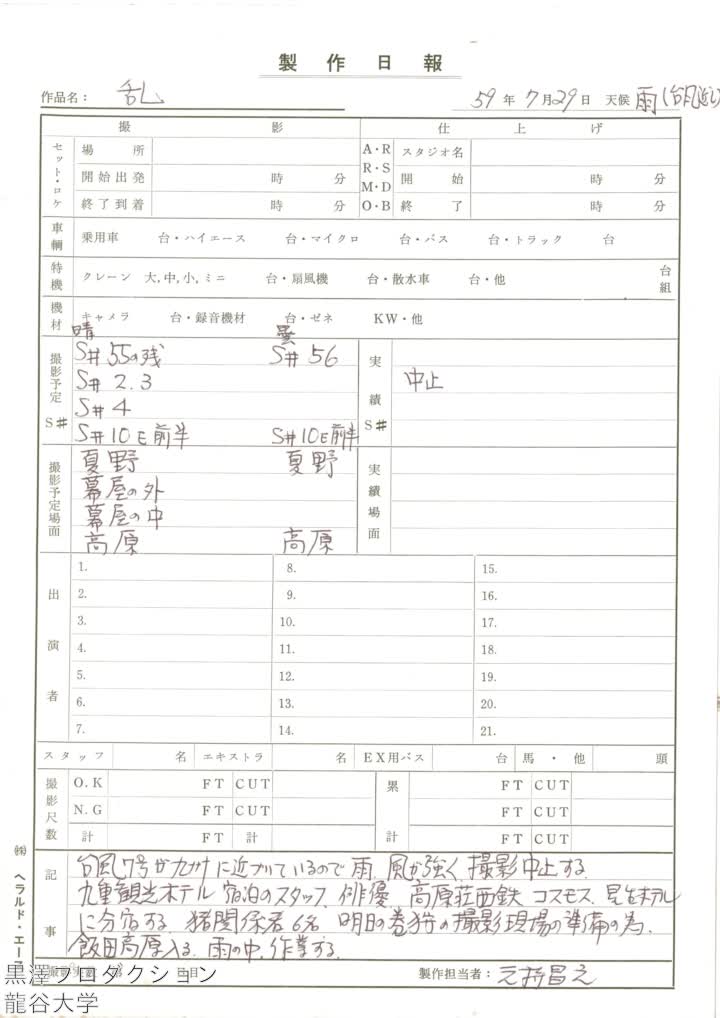 製作日報
作品名： 乱 59年7月29日 天候 雨(台風近し)
撮影 仕上げ
セット・ロケ 場所 A・R スタジオ名
R・S
開始出発 時 分 開始 時 分
M・D
終了到着 時 分 O・B 終了 時 分
車輌 乗用車 台・ハイエース 台・マイクロ 台・バス 台・トラック 台
特機 クレーン 大,中,小,ミニ 台・扇風機 台・散水車 台・他 台組
機材 キャメラ 台・録音機材 台・ゼネ KW・他
晴 曇
撮影予定 S# S#55の残 S#56 実績 S#
S#2.3 中止
S#4
S#10E前半 S#10E前半
撮影予定場面 夏野 夏野 実績場面
幕屋の外
幕屋の中
高原 高原
出演者
1. 8. 15.
2. 9. 16.
3. 10. 17.
4. 11. 18.
5. 12. 19.
6. 13. 20.
7. 14. 21.
スタッフ 名 エキストラ 名 EX用バス 台 馬・他 頭
撮影尺数 O.K FT CUT 累計 FT CUT
N.G FT CUT FT CUT
計 FT 計 FT CUT
記事
台風7号が九州に近づいているので雨、風が強く、撮影中止する。
九重観光ホテル宿泊のスタッフ、俳優、高原荘西鉄、コスモス、
に分宿する。猪関係者6名 明日の巻狩の撮影現場の準備の為、
飯田高原入る。雨の中、作業する。
製作担当者：
㈱ ヘラルド・エース
黒澤プロダクション
龍谷大学